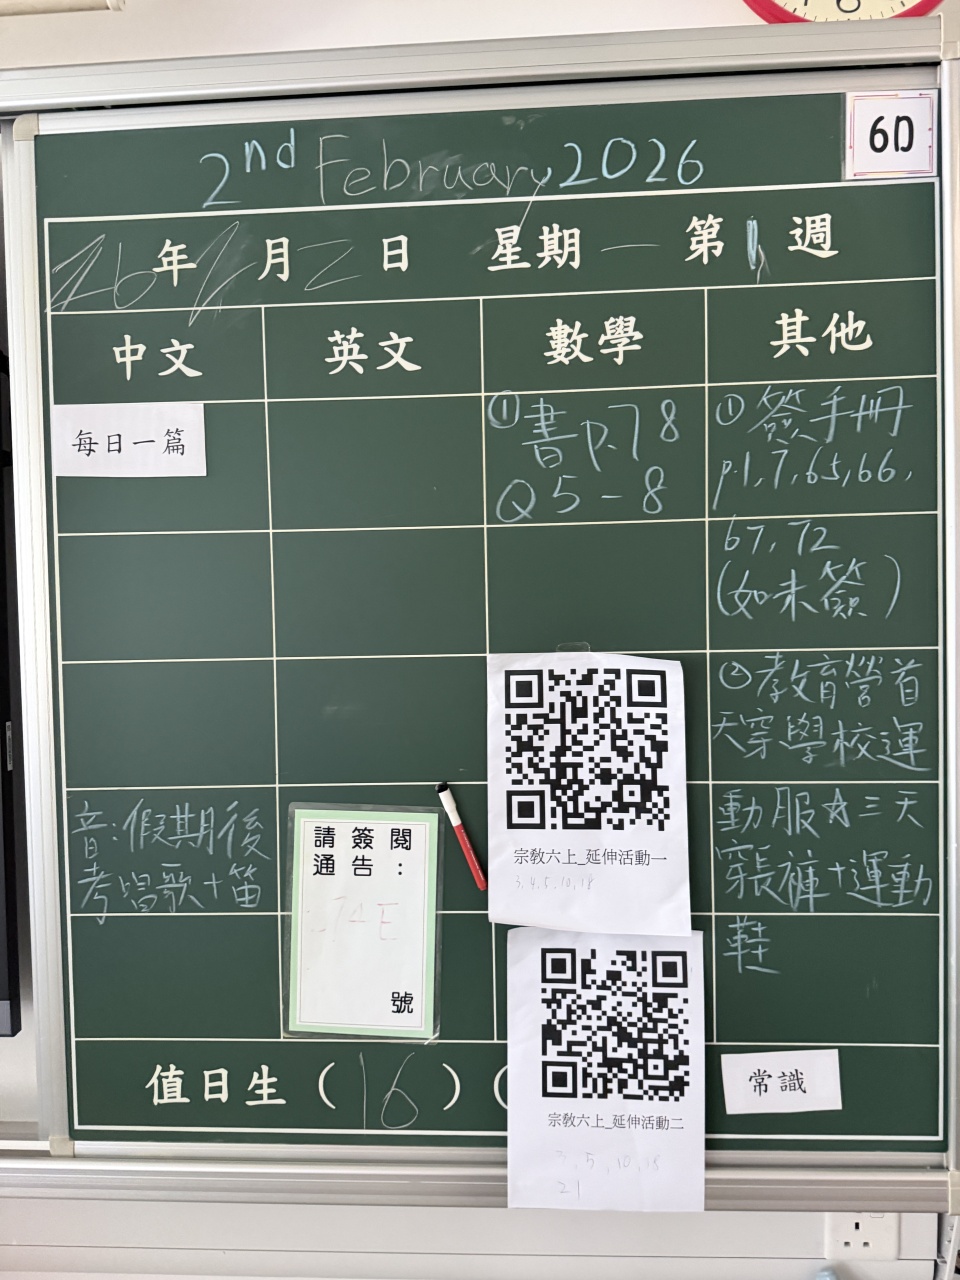 6D
2nd February 2026
26年2月2日 星期一 第1週
中文 英文 數學 其他
每日一篇
① 書p.78
Q5-8
① 簽手冊
p.1,7,65,66,
67,72
(如未簽)
②教育營首
天穿學校運
動服☆三天
穿長褲+運動
鞋
音:假期後
考唱歌+笛
請簽閱
通告:
74E
號
宗教六上_延伸活動一
3,4,5,10,18
宗教六上_延伸活動二
3,5,10,18
21
值日生(16)(
常識